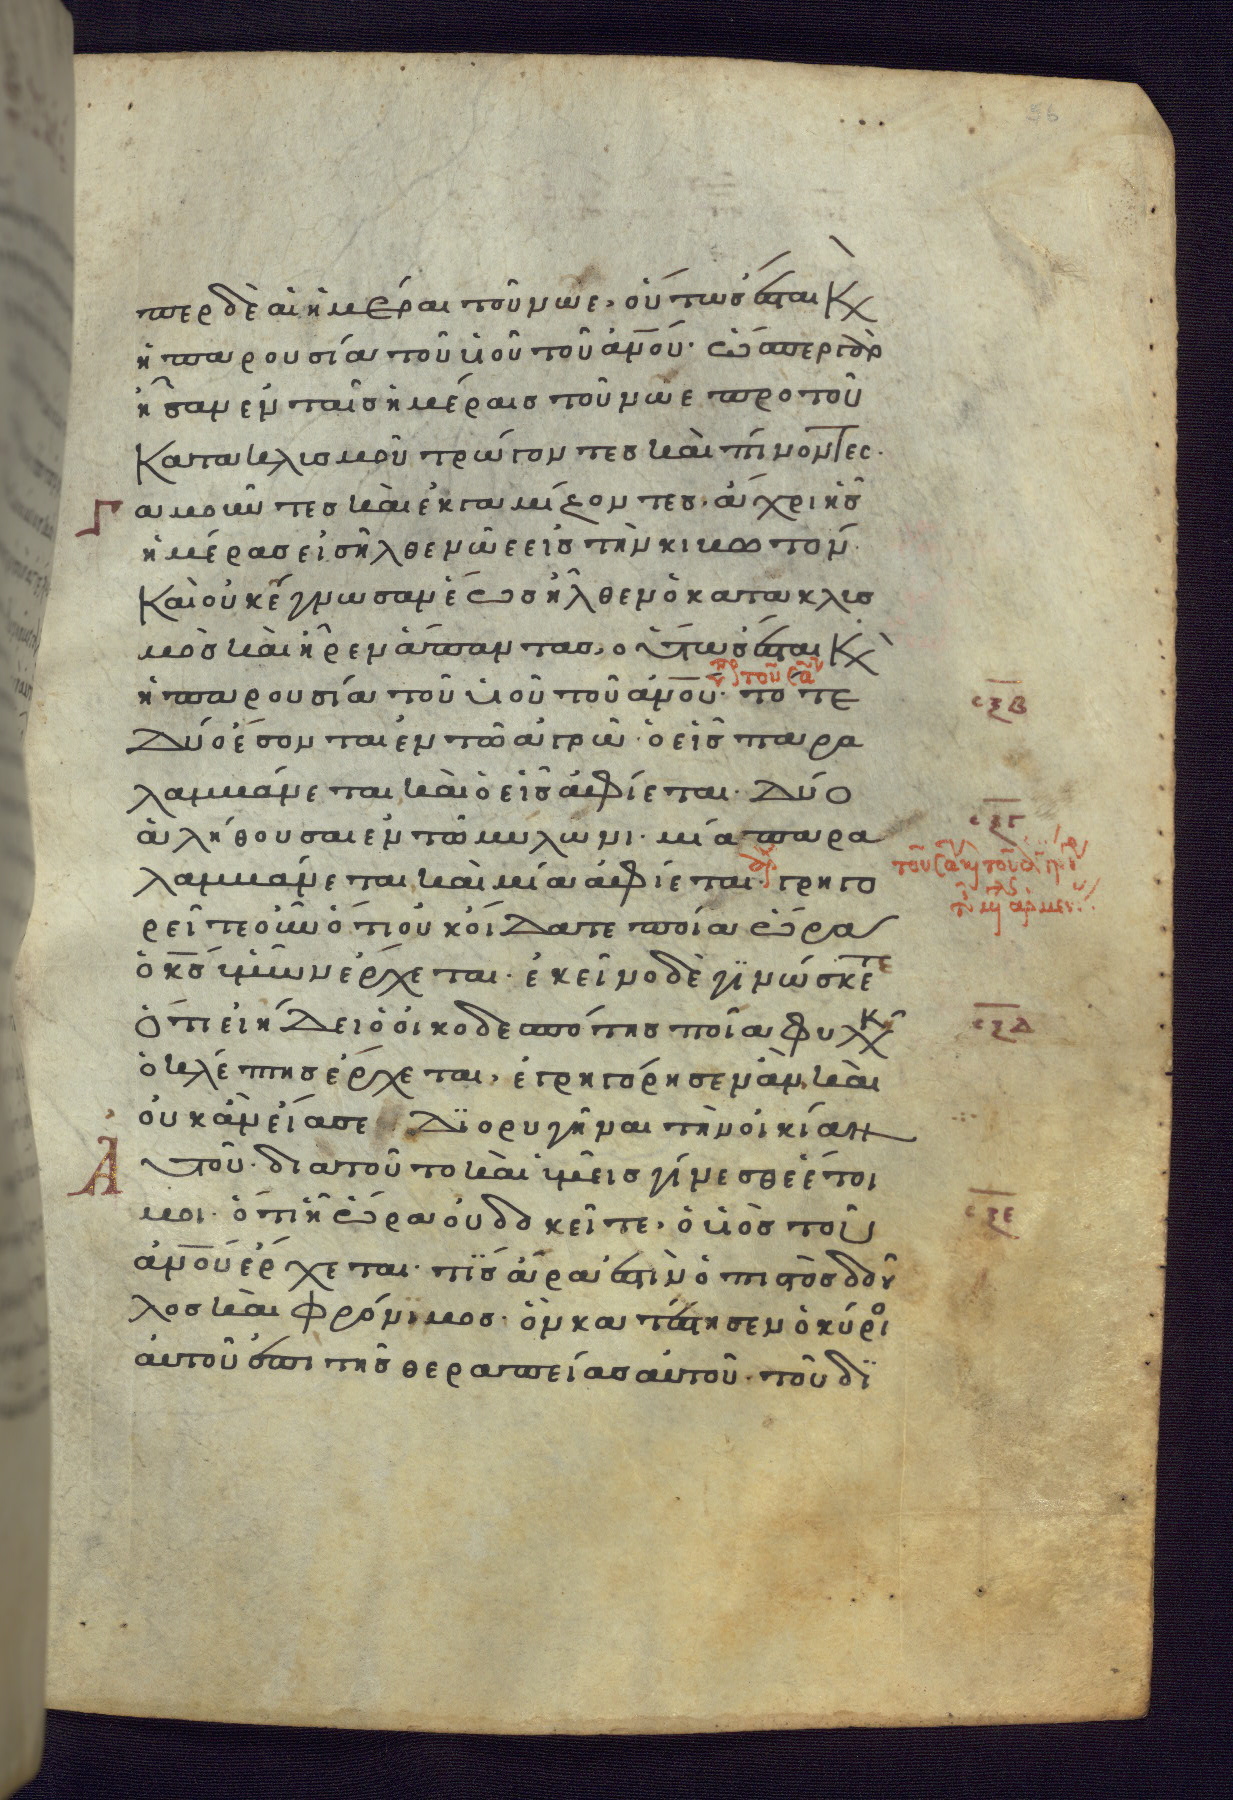 περ δὲ αἱ ἡμέραι τοῦ νῶε, οὕτως ἔσται κ(αὶ)
ἡ παρουσία τοῦ υἱοῦ τοῦ ἀνου· ὥσπερ γὰρ
ἦσαν ἐν ταῖς ἡμέραις τοῦ νῶε προ τοῦ
κατακλισμοῦ τρώγοντες καὶ πίνοντες·
γαμοῦντες καὶ ἐκγαμίζοντες, ἄχρι ἧς
ἡμέρας εἰσῆλθε νῶε εἰς τὴν κιβωτόν·
Καὶ οὐκ ἔγνωσαν ἕως ἦλθεν ὁ κατακλισ
μὸς καὶ ἦρεν ἅπαντας, οὕτως ἔσται κ(αὶ)
ἡ παρουσία τοῦ υἱοῦ τοῦ ἀνου· τότε
Δύο ἔσονται ἐν τῶ ἀγρῶ· ὁ εἷς παρα
λαμβάνεται καὶ ὁ εἷς ἀφίεται· Δύο
ἀλήθουσαι ἐν τῶ μυλωνι· μία παρα
λαμβάνεται καὶ μία ἀφίεται· γρηγο
ρεῖτε οὖν ὅτι οὐκ οἴδατε ποία ὥρα
ὁ κς ὑμῶν ἔρχεται· ἐκεῖνο δὲ γινώσκετε
ὅτι εἰ ἤδει ὁ οἰκοδεσπότης ποία φυλακῆ
ὁ κλέπτης ἔρχεται, ἐγρηγόρησεν ἂν καὶ
οὐκ ἂν εἴασε διορυγῆναι τὴν οἰκίαν
Αὐτοῦ· δια τοῦτο καὶ ὑμεῖς γίνεσθε ἕτοι
μοι· ὅτι ἧ ὥρα οὐ δοκεῖτε, ὁ υἱὸς τοῦ
ἀνου ἔρχεται· τίς ἄρα ἐστὶν ὁ πιστὸς δοῦ
λος καὶ φρόνιμος· ὃν κατέστησεν ὁ κύριο
αὐτοῦ ἐπι τῆς θεραπείας αὐτοῦ· τοῦ δι
σξβ
σξγ
σξδ
σξε